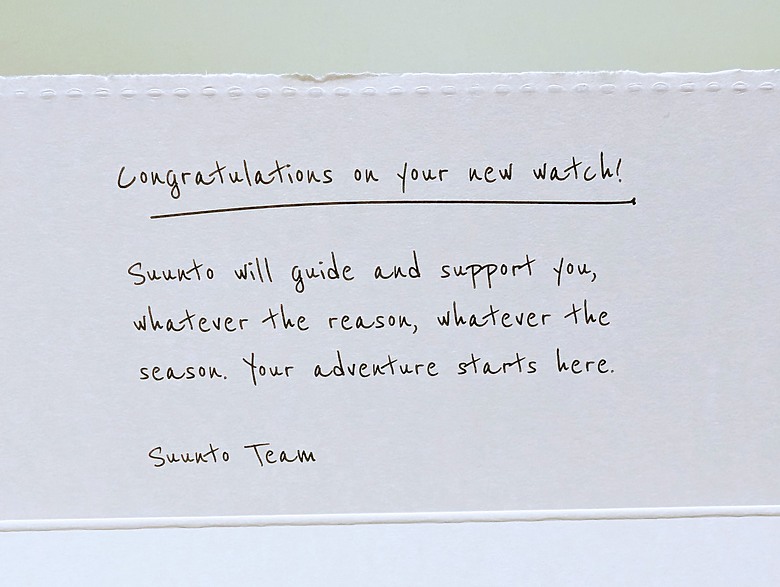 Congratulations on your new watch!
Suunto will guide and support you,
whatever the reason, whatever the
season. Your adventure starts here.
Suunto Team